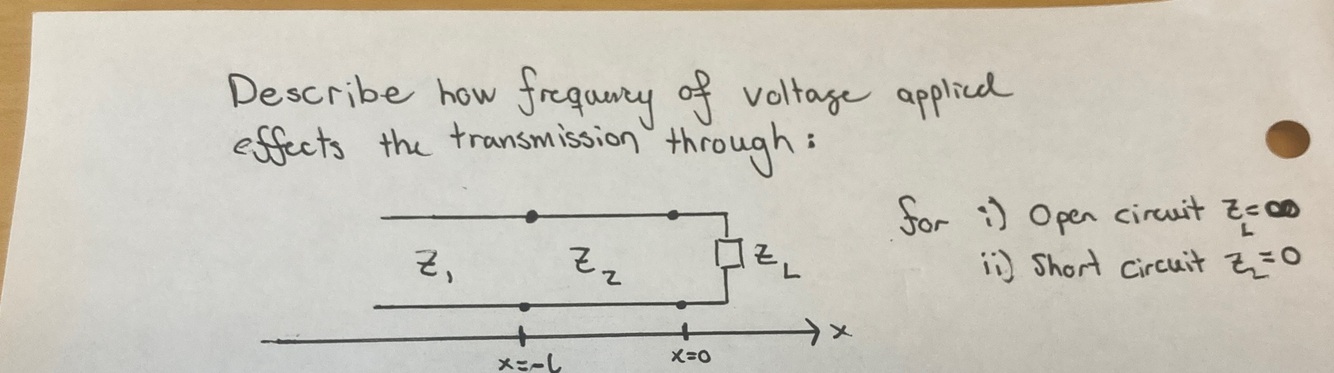 Describe how frequency of voltage applied
effects the transmission through:
for i) Open circuit Z_L=∞
ii) Short circuit Z_L=0
Z_1 Z_2 Z_L
x
x=-l x=0